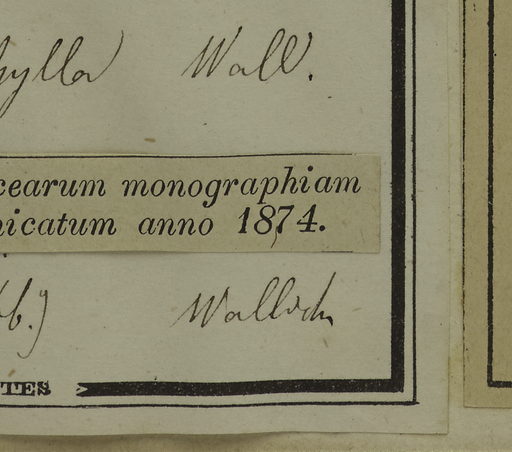 hylla Wall.
cearum monographiam
nicatum anno 1874.
b.) Wallich
TES